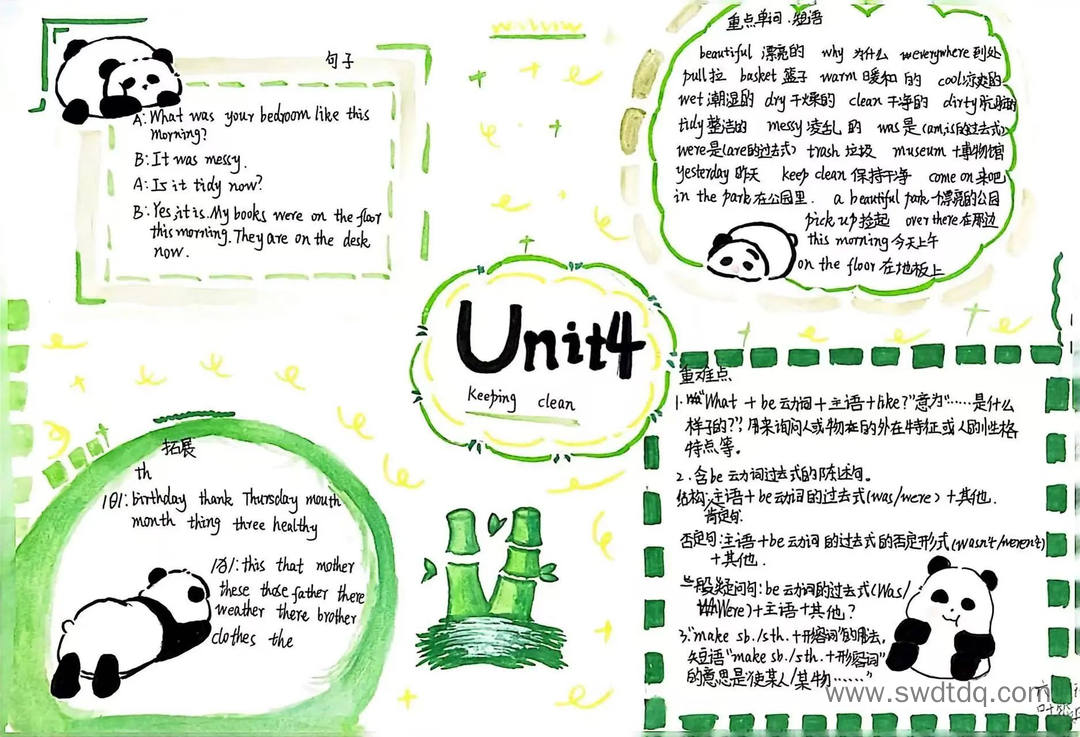 句子
A: What was your bedroom like this
morning?
B: It was messy.
A: Is it tidy now?
B: Yes, it is. My books were on the floor
this morning. They are on the desk
now.
重点单词、短语
beautiful 漂亮的 why 为什么 weverywhere 到处
pull 拉 basket 篮子 warm 暖和的 cool 凉爽的
wet 潮湿的 dry 干燥的 clean 干净的 dirty 肮脏的
tidy 整洁的 messy 凌乱的 was 是 (am,is的过去式)
were是(are的过去式) trash 垃圾 museum 博物馆
yesterday 昨天 keep clean 保持干净 come on 来吧
in the park 在公园里. a beautiful park 一个漂亮的公园
pick up 捡起 over there 在那边
this morning 今天上午
on the floor 在地板上
Unit4
keeping clean
拓展
th
/θ/: birthday thank Thursday mouth
month thing three healthy
/ð/: this that mother
these those father there
weather there brother
clothes the
重难点
1. "What + be动词+主语+like?"意为"……是什么
样子的?"用来询问人或物在的外在特征或人的性格
特点等。
2. 含be动词过去式的陈述句。
结构:主语+be动词的过去式(was/were)+其他.
肯定句.
否定句:主语+be动词的过去式的否定形式(wasn't/weren't)
+其他.
一般疑问句:be动词的过去式(Was/
Were)+主语+其他?
3."make sb./sth.+形容词"的用法,
短语"make sb./sth.+形容词"
的意思是"使某人/某物……"
www.swdtdq.com